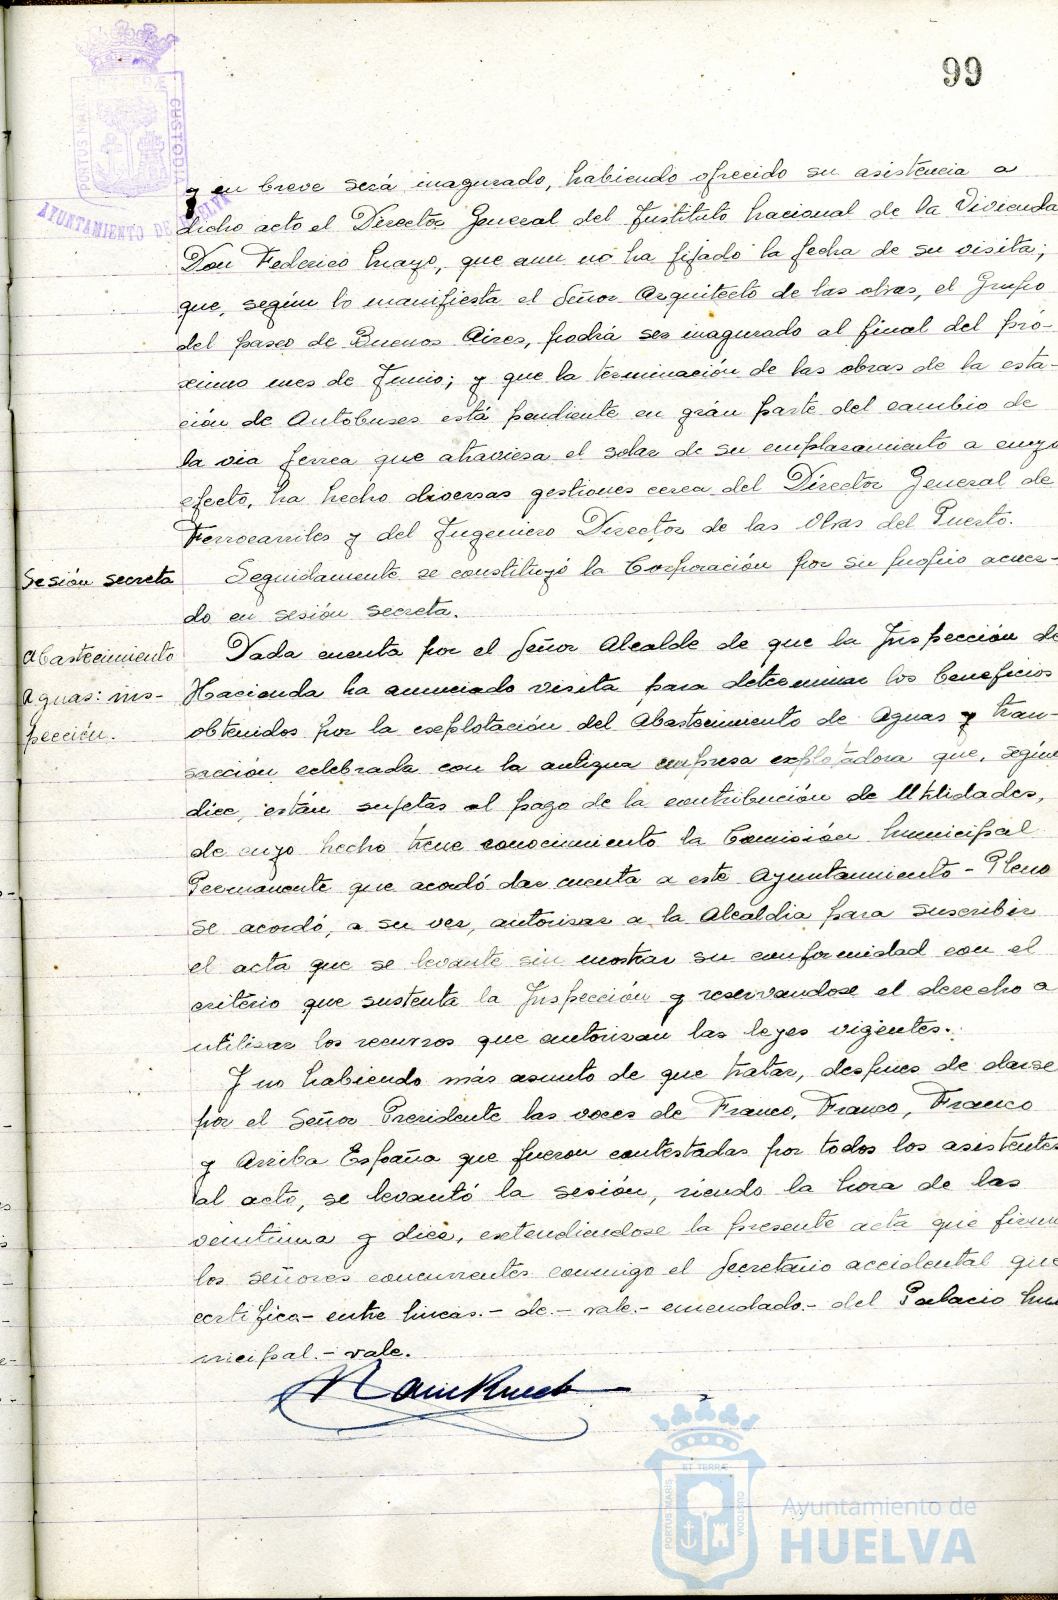 99
PORTUS MARIS
CUSTODIA
AYUNTAMIENTO DE HUELVA
y en breve será inagurado, habiendo ofrecido su asistencia a
dicho acto el Director General del Instituto Nacional de la Vivienda
Don Federico Mayo, que aun no ha fijado la fecha de su visita;
que, según lo manifiesta el Señor Arquitecto de las obras, el Grupo
del paseo de Buenos Aires, podrá ser inagurado al final del pró-
ximo mes de Junio; y que la terminación de las obras de la esta-
ción de Autobuses está pendiente en grán parte del cambio de
la via ferrea que atraviesa el solar de su emplazamiento a cuyo
efecto, ha hecho diversas gestiones cerca del Director General de
Ferrocarriles y del Ingeniero Director de las Obras del Puerto.
Sesión secreta
Seguidamente se constituyó la Corporación por su propio acuer-
do en sesión secreta.
Abastecimiento
Aguas: ins-
pección.
Dada cuenta por el Señor Alcalde de que la Inspección de
Hacienda ha anunciado visita para determinar los beneficios
obtenidos por la explotación del Abastecimiento de Aguas y tran-
sacción celebrada con la antigua empresa explotadora que, según
dice, están sujetas al pago de la contribución de Utilidades,
de cuyo hecho tiene conocimiento la Comisión Municipal
Permanente que acordó dar cuenta a este Ayuntamiento-Pleno
se acordó, a su vez, autorizar a la Alcaldia para suscribir
el acta que se levante sin mostrar su conformidad con el
criterio que sustenta la Inspección y reservandose el derecho a
utilizar los recursos que autorizan las leyes vigentes.
Y no habiendo más asunto de que tratar, despues de darse
por el Señor Presidente las voces de Franco, Franco, Franco
y Arriba España que fueron contestadas por todos los asistentes
al acto, se levantó la sesión, siendo la hora de las
veintiuna y diez, extendiendose la presente acta que firman
los señores concurrentes conmigo el Secretario accidental que
certifica.- entre lineas.- de.- vale.- enmendado.- del Palacio Mu-
nicipal.- vale.
ET TERRÆ
PORTUS MARIS
CUSTODIA
Ayuntamiento de
HUELVA